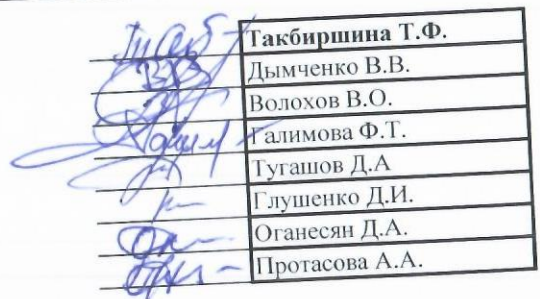 Такбиршина Т.Ф.
Дымченко В.В.
Волохов В.О.
Галимова Ф.Т.
Тугашов Д.А
Глушенко Д.И.
Оганесян Д.А.
Протасова А.А.